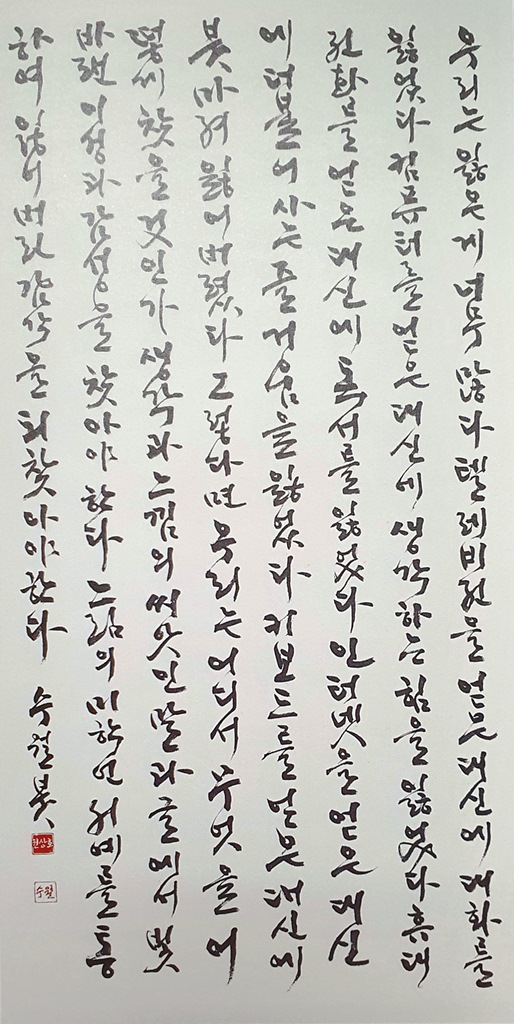 우리는 잃은게 너무 많다 텔레비전을 얻은 대신에 대화를
잃었다 컴퓨터를 얻은 대신에 생각하는 힘을 잃었다 휴대
전화를 얻은 대신에 독서를 잃었다 인터넷을 얻은 대신
에 더불어 사는 즐거움을 잃었다 키보드를 얻은 대신에
붓마저 잃어버렸다 그렇다면 우리는 어디서 무엇을 어
떻게 찾을 것인가 생각과 느낌의 씨앗인 말과 글에서 빛
바랜 이성과 감성을 찾아야 한다 느림의 미학인 서예를 통
하여 잃어버린 감각을 되찾아야 한다 수월 붓
한상호
수월